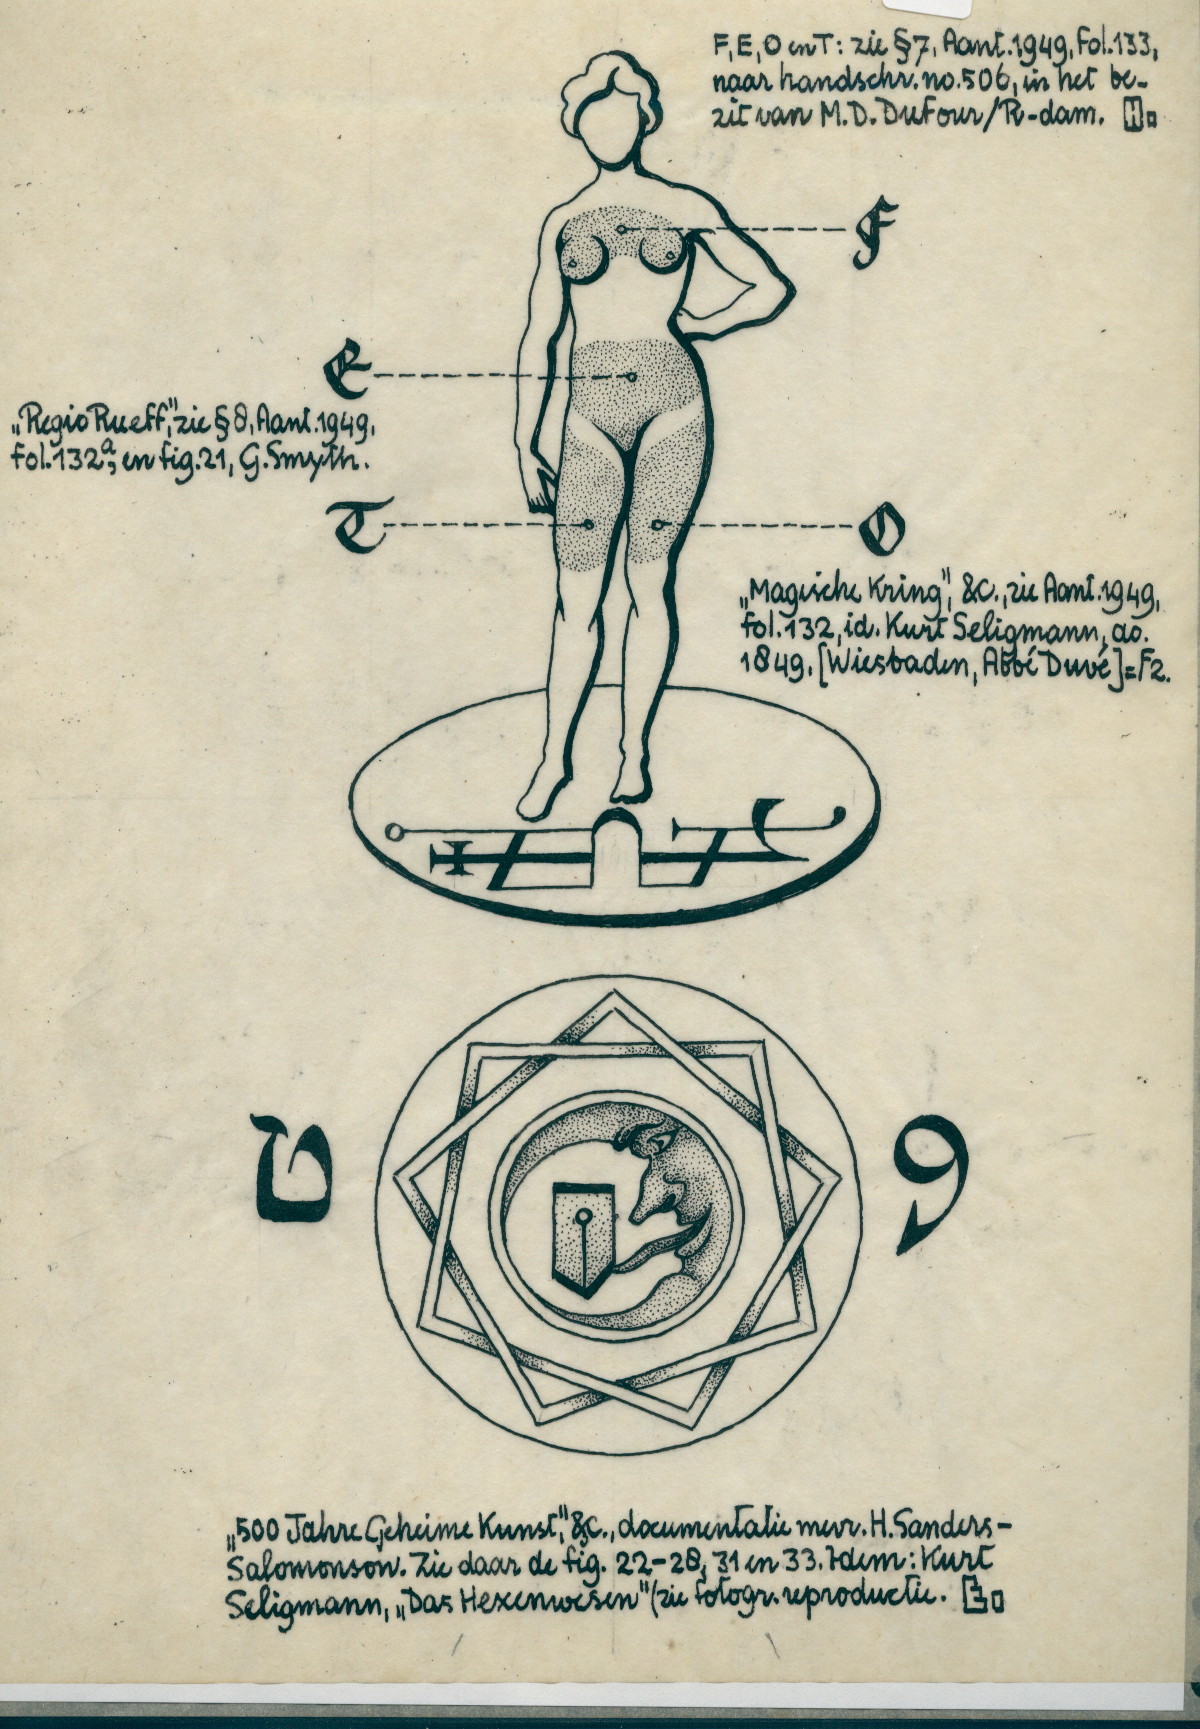 F, E, O en T: zie §7, Aant. 1949, fol. 133,
naar handschr. no. 506, in het be-
zit van M.D. DuFour/R-dam. H.
F
E
„Regio Rueff”, zie §8, Aant. 1949,
fol. 132a, en fig. 21, G. Smyth.
T
O
„Magische Kring”, &c., zie Aant. 1949,
fol. 132, id. Kurt Seligmann, ao.
1849. [Wiesbaden, Abbé Duvé]=F2.
ט
9
„500 Jahre Geheime Kunst”, &c., documentatie mevr. H. Sanders-
Salomonson. Zie daar de fig. 22-28, 31 en 33. Idem: Kurt
Seligmann, „Das Hexenwesen” (zie fotogr. reproductie.